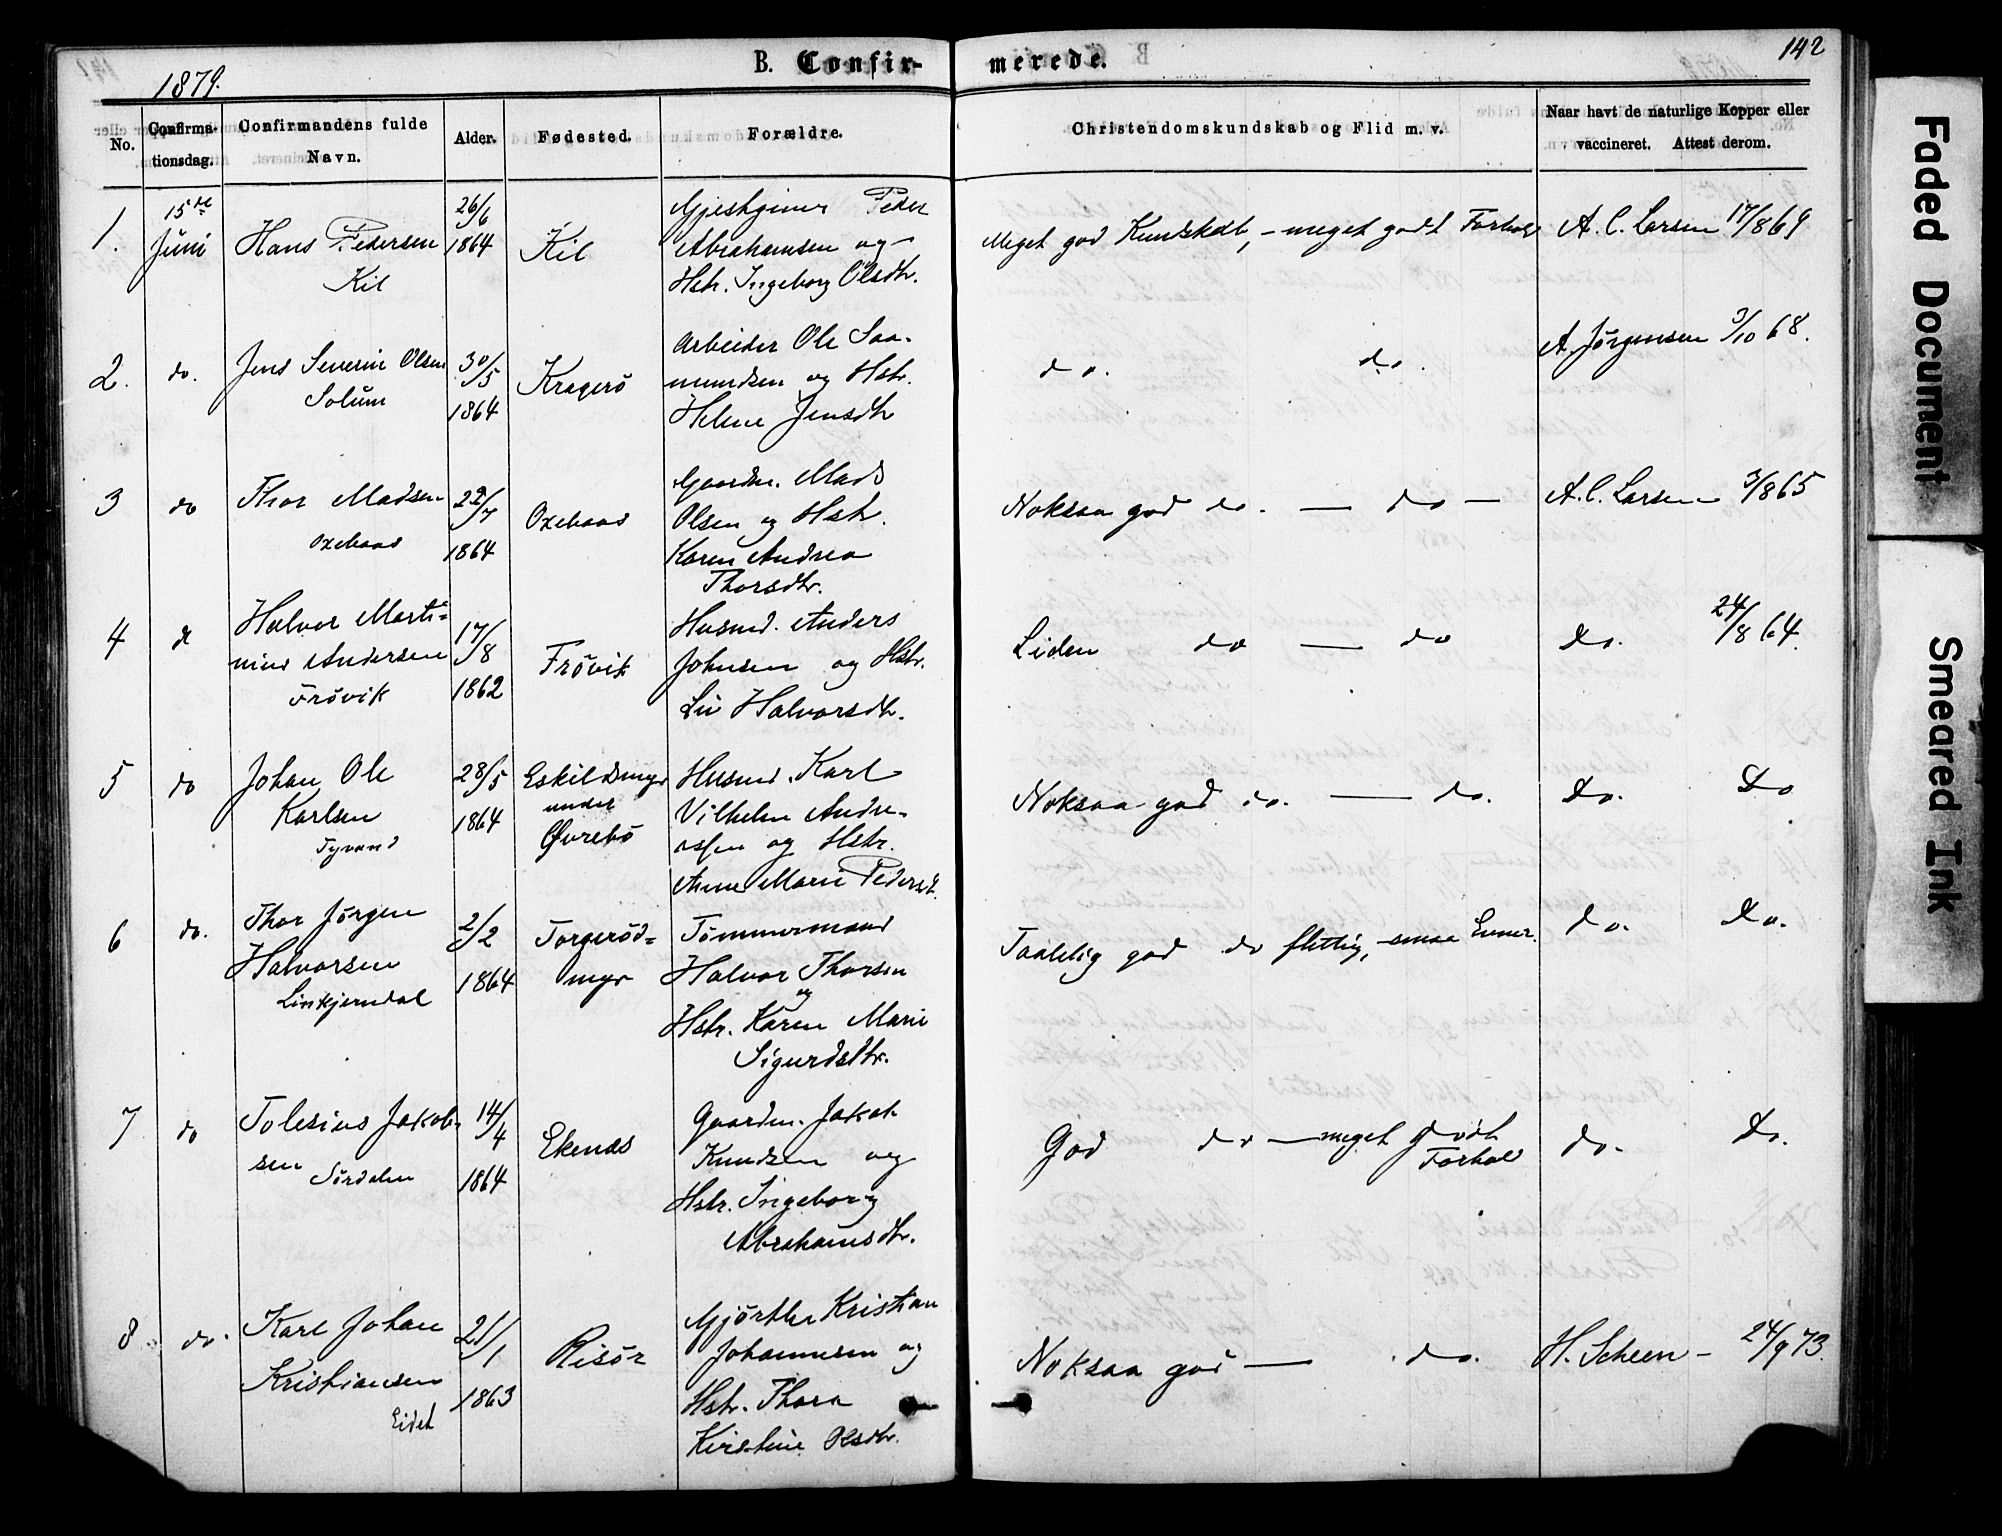 142
1879.
B. Confir-
merede.
No.
Confirma-
tionsdag.
Confirmandens fulde
Navn.
Alder.
Fødested.
Forældre.
Christendomskundskab og Flid m. v.
Naar havt de naturlige Kopper eller
vaccineret. Attest derom.
1.
15de
Juni
Hans Pedersen
Kil
26/6
1864
Kil
Gjestgiver Peder
Abrahamsen og
Hstr. Ingeborg Olsdtr.
Meget god Kundskab, - meget godt Forhold
A. C. Larsen 17/8 69
2.
do.
Jens Severin Olsen
Solum
30/5
1864
Kragerö
Arbeider Ole Saa-
mundsen og Hstr.
Helene Jensdtr
do. do.
A. Jørgensen 3/10 68.
3
do
Thor Madsen
Oxebaas
29/7
1864
Oxebaas
Gaardm. Mads
Olsen og Hstr.
Karen Andrea
Thorsdtr.
Noksaa god do. — do —
A. C. Larsen 3/8 65
4
do
Halvor Marti-
nius Andersen
Frövik
17/8
1862
Frövik
Husmd. Anders
Johnsen og Hstr.
Liv Halvorsdtr.
Liden do — do
Do. 24/8 64.
5
do
Johan Ole
Karlsen
Tyvand
28/5
1864
Eskildsmyr
under
Øvrebö
Husmd. Karl
Vilhelm Andre-
assen og Hstr.
Anne Marie Pedersd.
Noksaa god do. — do.
Do. Do
6
do.
Thor Jørgen
Halvorsen
Linkjerndal
2/2
1864
Torgeröd-
myr
Tömmermand
Halvor Thorsen
og
Hstr. Karen Marie
Sigurdsdtr.
Taalelig god do flittig, smaa Evner.
do. Do.
7
do
Tolesius Jakob-
sen
Sördalen
14/4
1864
Ekenæs
Gaardm. Jakob
Knudsen og
Hstr. Ingeborg
Abrahamsdtr.
God do — meget godt
Forhold
do. Do.
8
do.
Karl Johan
Kristiansen
Eidet
21/1
1863
Risör
Gjörtler Kristian
Johannesen og
Hstr. Thara
Kirstine Olsdtr.
Noksaa god — do.
H. Scheen - 24/9 73.
Faded Document
Smeared Ink